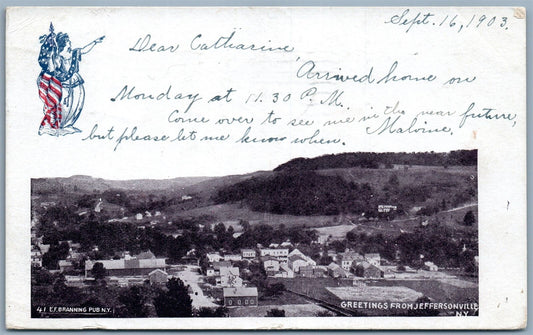 Sept. 16, 1903.
Dear Catharine,
Arrived home on
Monday at 11.30 P.M.
Come over to see me in the near future,
but please let me know when. Malone.
41 E.F. BRANNING PUB N.Y.
GREETINGS FROM JEFFERSONVILLE
N.Y.